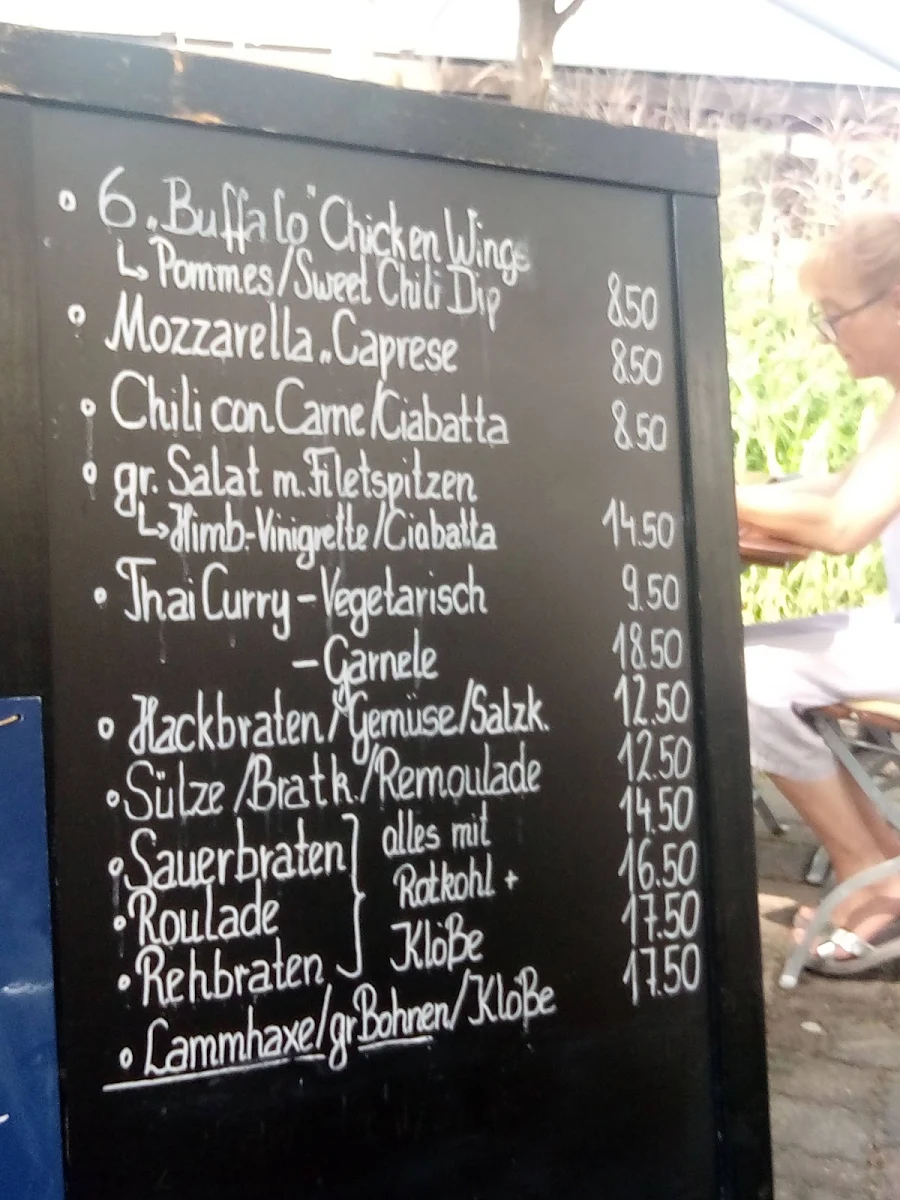 • 6 „Buffalo" Chicken Wings
↳ Pommes/Sweet Chili Dip 8.50
• Mozzarella „Caprese 8.50
• Chili con Carne/Ciabatta 8.50
• gr. Salat m. Filetspitzen
↳ Himb.-Vinigrette/Ciabatta 14.50
• Thai Curry – Vegetarisch 9.50
– Garnele 18.50
• Hackbraten/Gemüse/Salzk. 12.50
• Sülze/Bratk./Remoulade 12.50
• Sauerbraten] alles mit 14.50
• Roulade } Rotkohl + 16.50
• Rehbraten ] Klöße 17.50
• Lammhaxe/gr Bohnen/Klöße 17.50